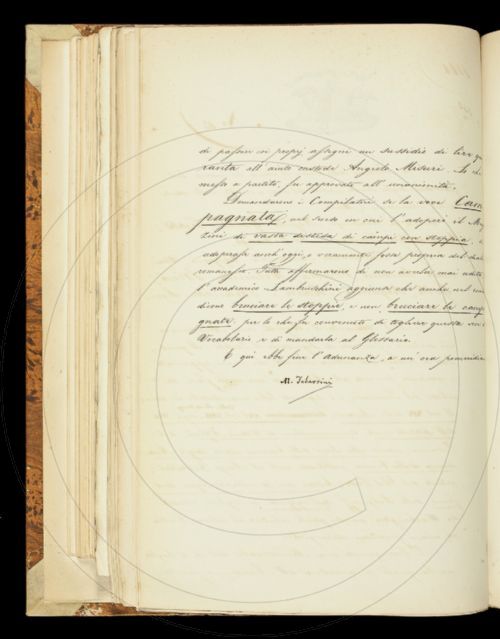 di passare coi proprj assegni un sussidio di lire qua
ranta all'aiuto custode Angiolo Misuri.
messo a partito, fu approvato all'unanimità.
Domandarono i Compilatori se la voce Cam
pagnata, nel senso in cui l'adoperò il Ma
di vasta distesa di campi con stoppia,
adoprasse anch'oggi, o veramente fosse propria del
Tutti affermarono di non averla mai udita
l'accademico Lambruschini aggiunse che anche nel
dicono bruciare le stoppie, e non bruciare le campa
gnate. per lo che fu convenuto di togliere questa voce
Vocabolario e di mandarla al Glossario.
E qui ebbe fine l'Adunanza, a un'ora pomeridia
M. Tabarrini